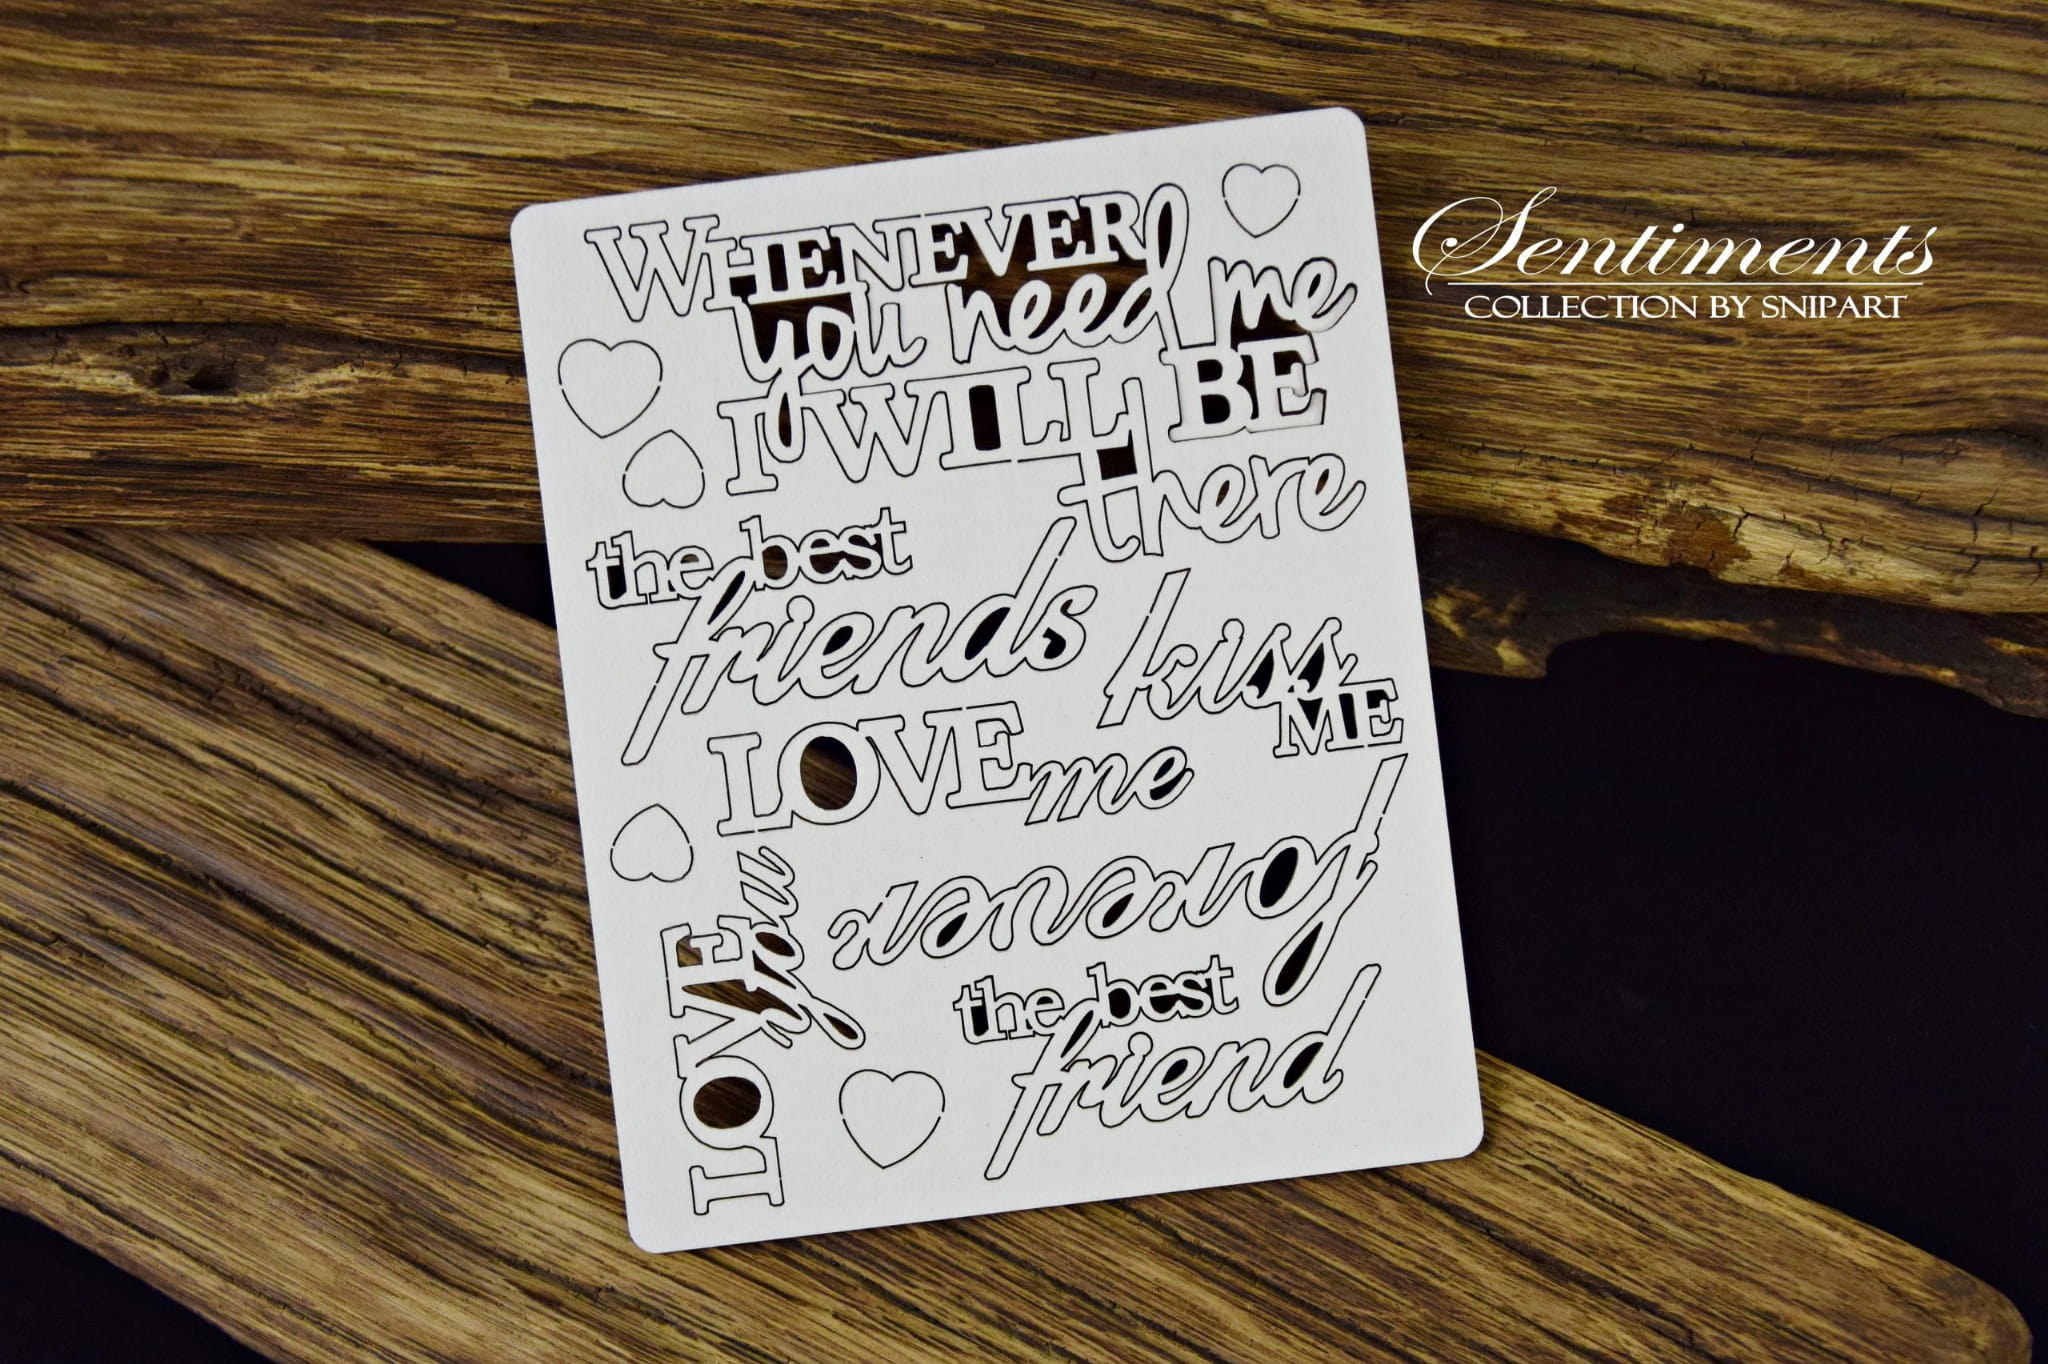 Sentiments
COLLECTION BY SNIPART
WHENEVER
you need me
I WILL BE
there
the best
friends
kiss
ME
LOVE me
forever
LOVE you
the best
friend